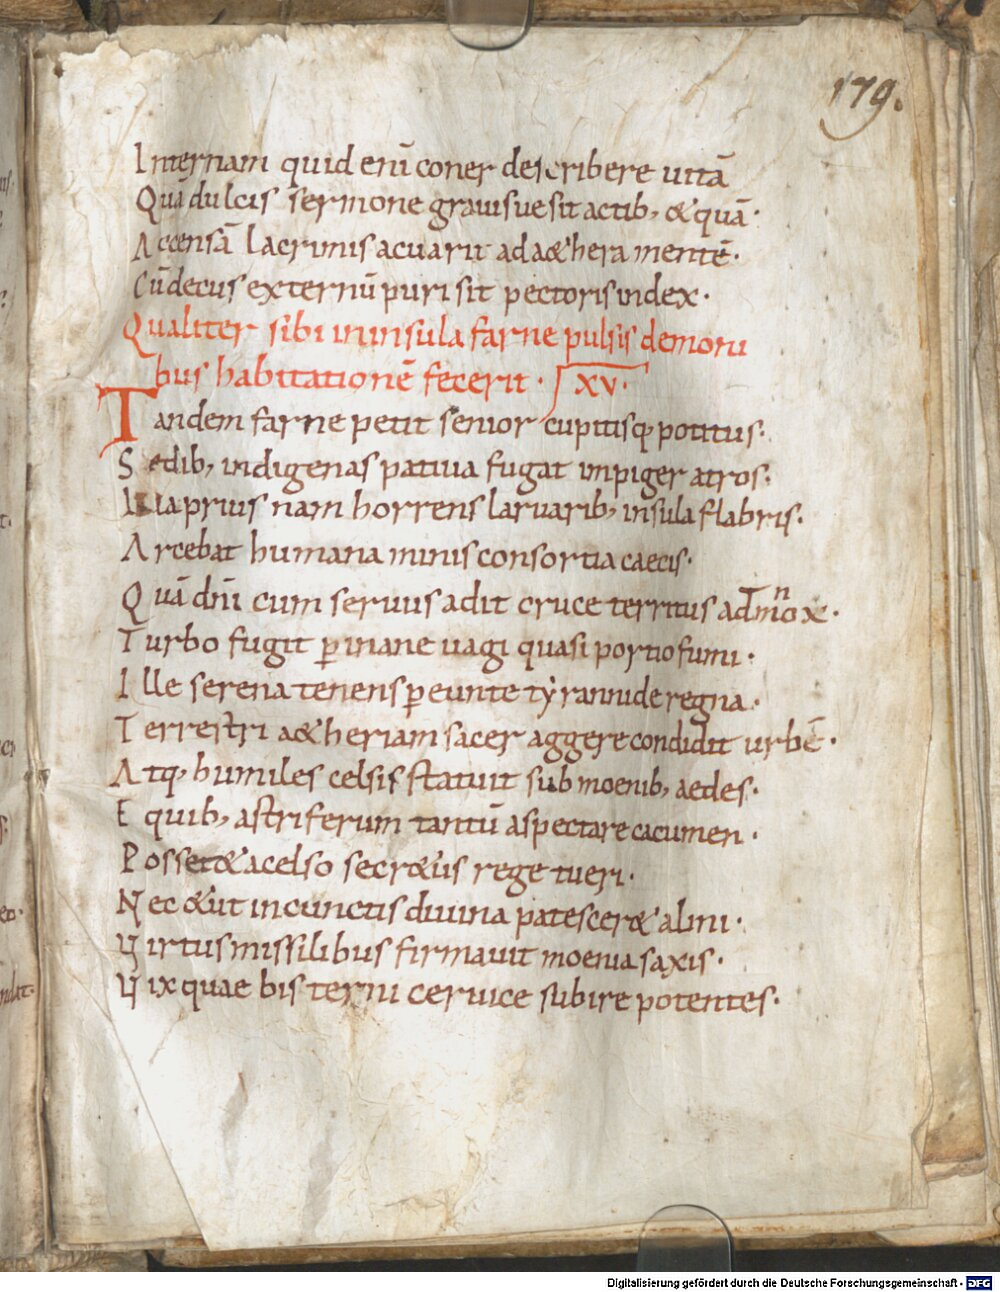 179.
Internam quid enī coner describere uitā
Quā dulcis sermone grauisue sit actib; & quā·
Accensā lacrimis acuarit ad aethera mentē·
Cū decus externū puri sit pectoris index·
Qualiter sibi in insula farne pulsis demoni
bus habitationē fecerit· XV·
Tandem farne petit senior cupitisq; potitus·
Sedib; indigenas patiua fugat inpiger atros·
Illa prius nam horrens laruarib; insula flabris·
Arcebat humana minis consortia caecis·
Quā dn̄i cum seruus adit cruce territus ad mox·
Turbo fugit ꝑ inane uagi quasi portio fumi·
Ille serena tenens ꝑeunte tẏrannide regna·
Terrestri a&heriam sacer aggere condidit urbē·
Atq; humiles celsis statuit sub moenib; aedes·
E quib; astriferum tantū aspectare cacumen·
Posset & a celso secr&ius rege tueri·
Nec & ut in cunctis diuina patescer& almi·
Uirtus missilibus firmauit moenia saxis·
Uix quae bis terni ceruice subire potentes·
Digitalisierung gefördert durch die Deutsche Forschungsgemeinschaft - DFG